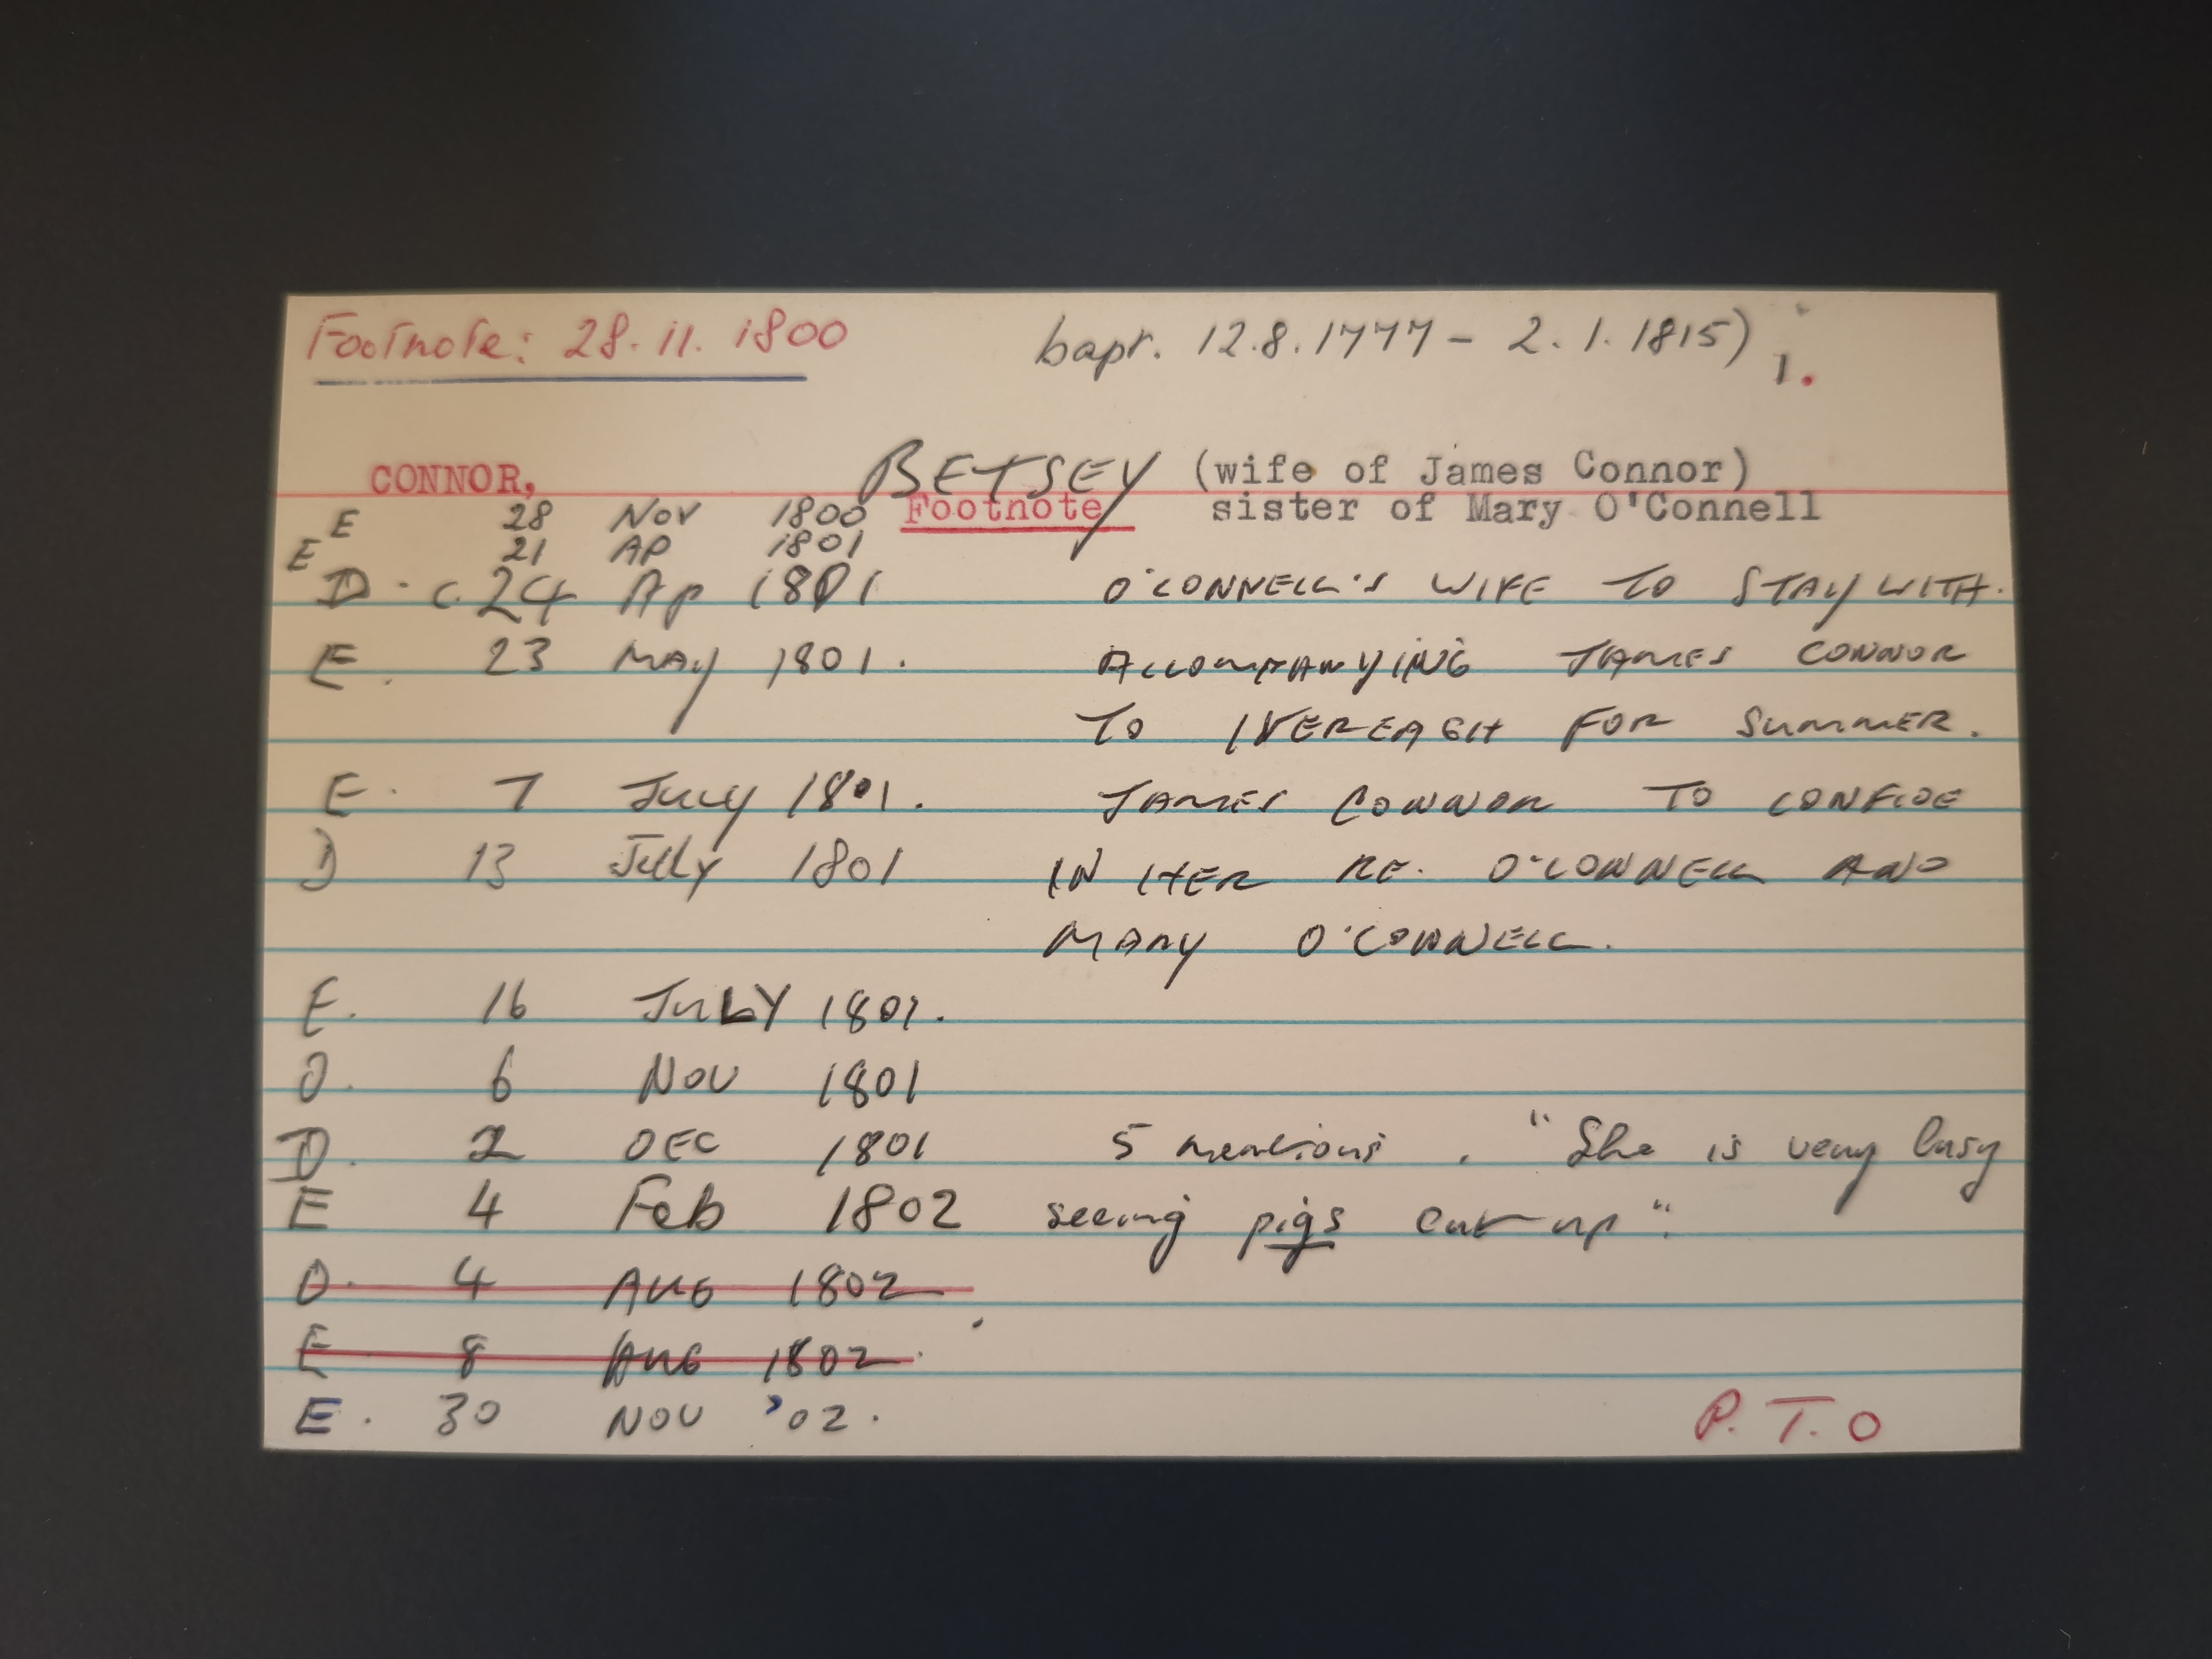 Footnote: 28.11.1800 bapt. 12.8.1777 - 2.1.1815) 1.
CONNOR, BETSEY (wife of James Connor)
Footnote sister of Mary O'Connell
E 28 Nov 1800
E 21 AP 1801
D. c. 24 Ap 1801 O'CONNELL'S WIFE TO STAY WITH.
E. 23 MAY 1801. ACCOMPANYING JAMES CONNOR
TO IVEREAGH FOR SUMMER.
E. 7 July 1801. JAMES CONNOR TO CONFIDE
D 13 July 1801 IN HER RE. O'CONNELL AND
MARY O'CONNELL.
E. 16 JULY 1801.
D. 6 NOV 1801
D. 2 DEC 1801 5 mentions. "She is very busy
E 4 Feb 1802 seeing pigs cut up".
D. 4 AUG 1802
E 8 AUG 1802.
E. 30 NOV '02.
P.T.O